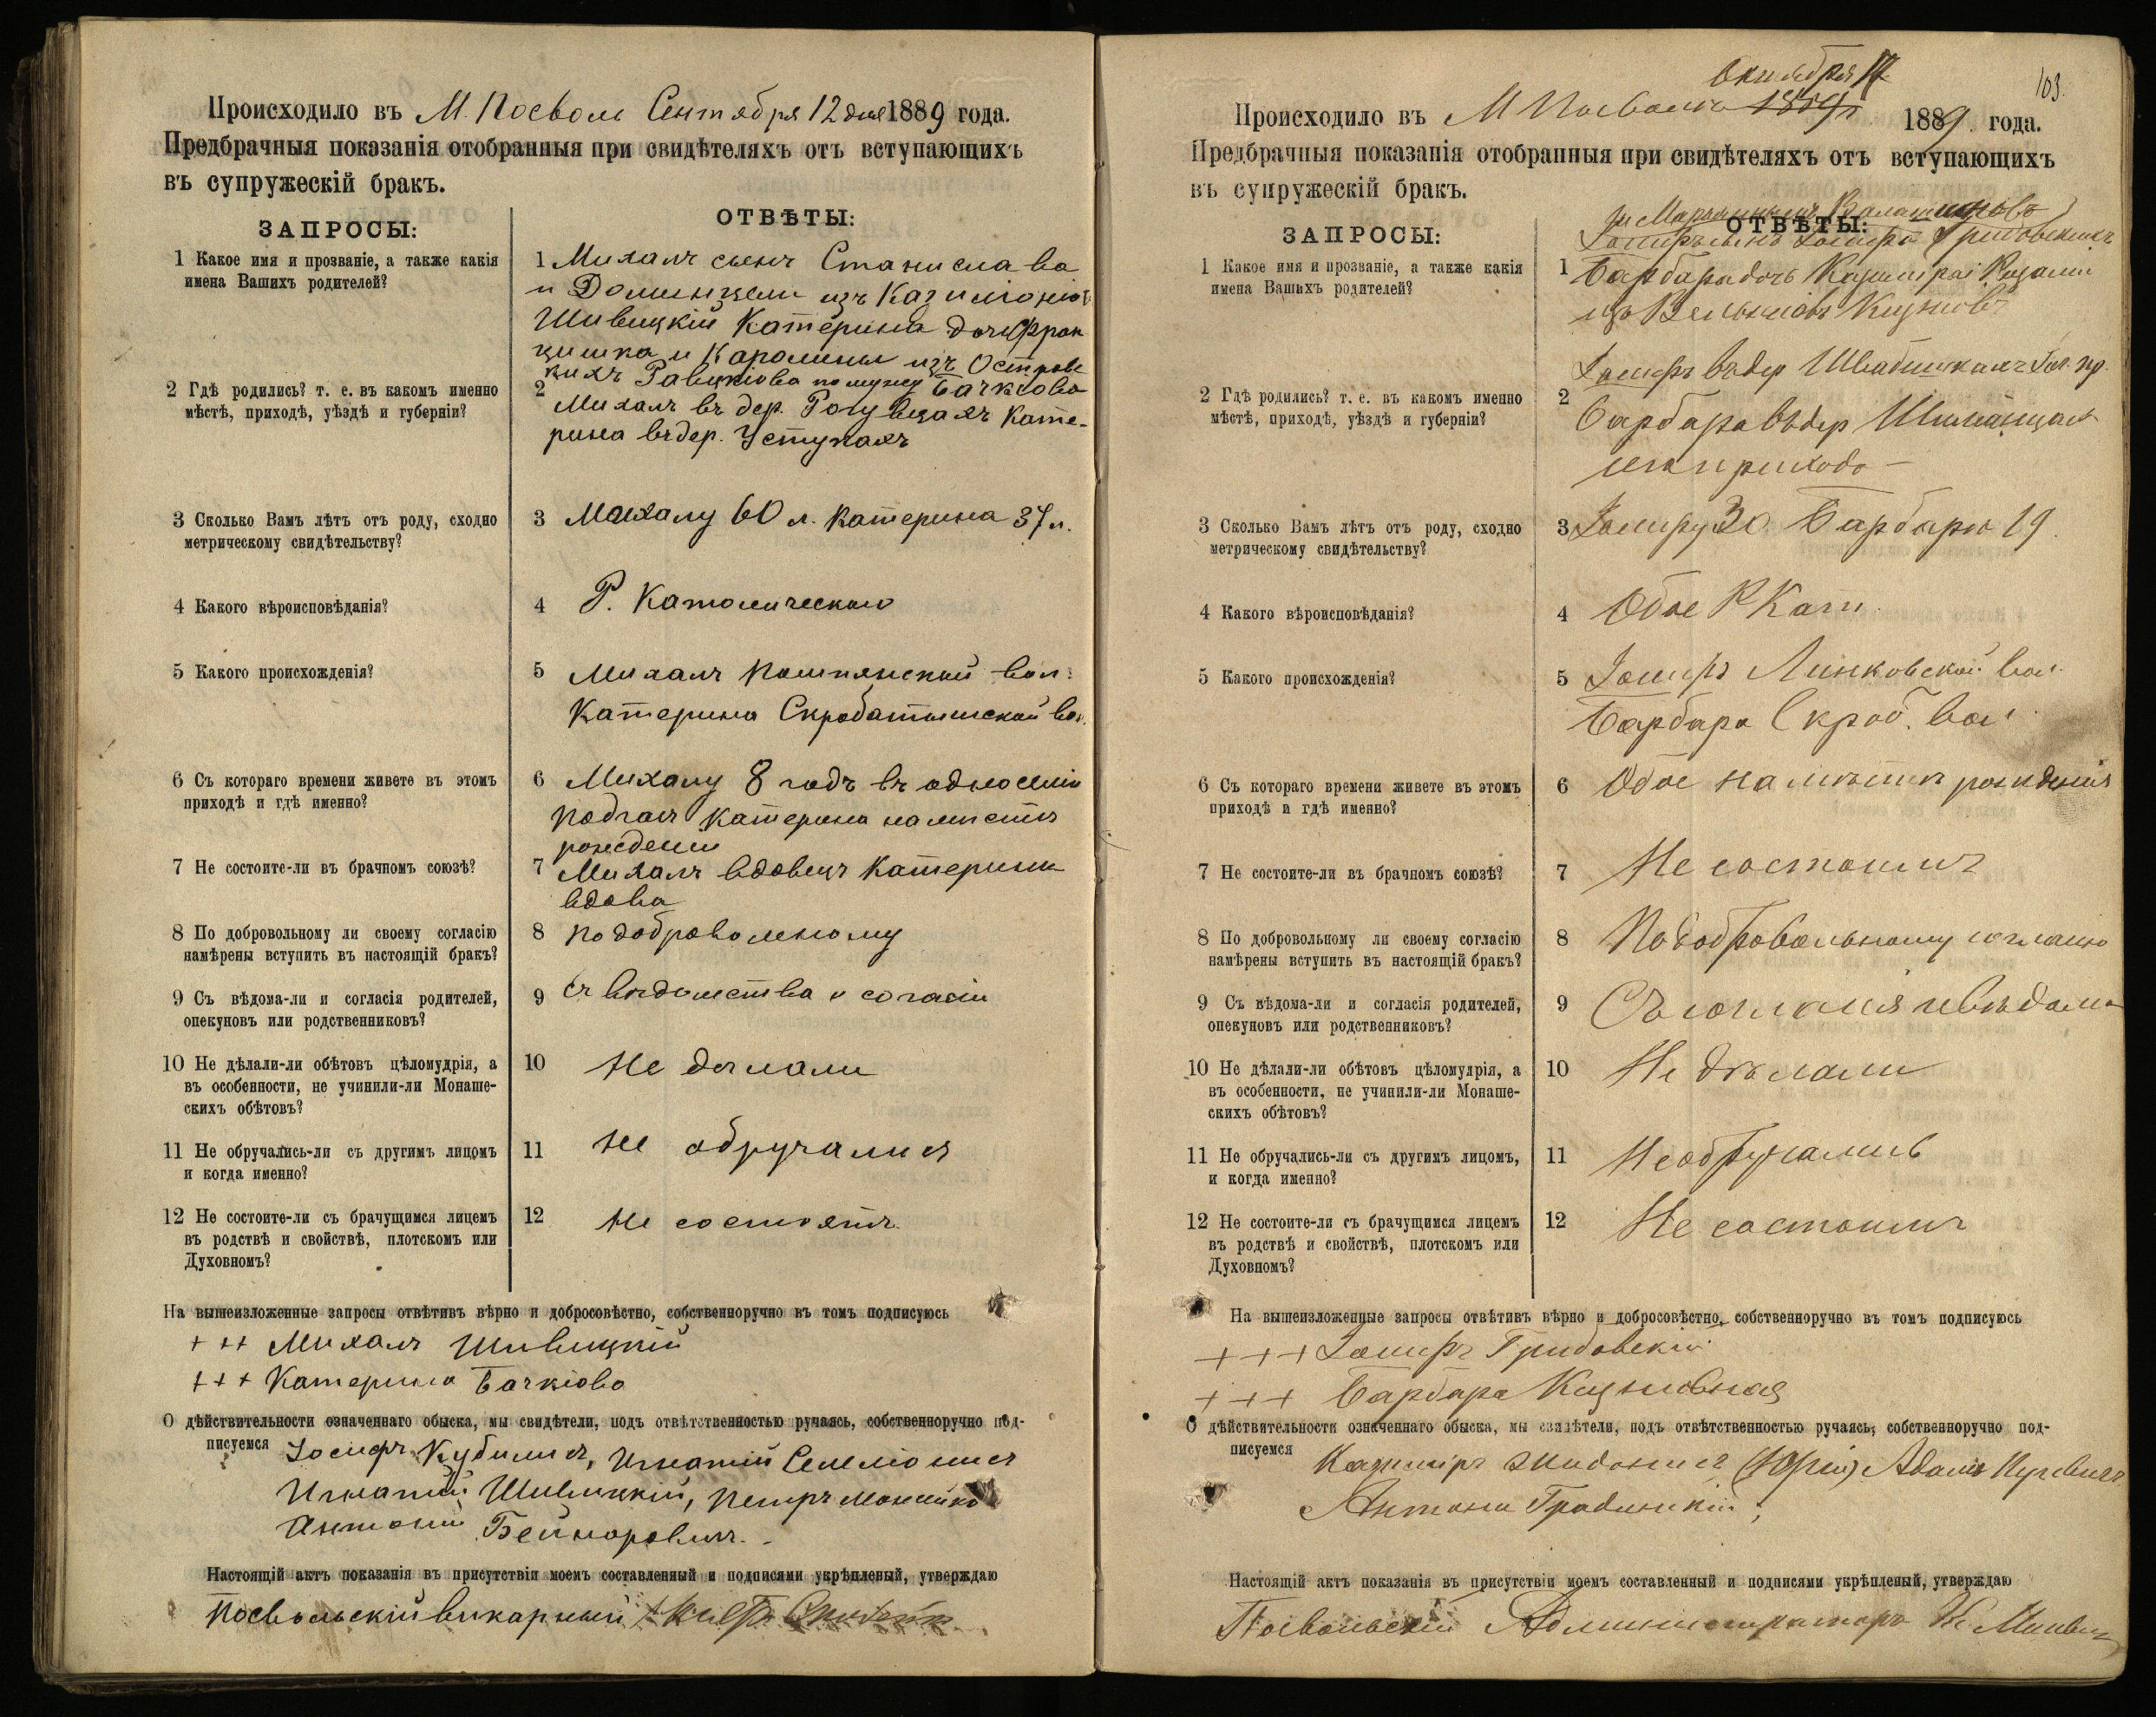 Происходило въ М. Посволь Сентября 12 дня 1889 года.
Предбрачныя показанія отобранныя при свидѣтеляхъ отъ вступающихъ
въ супружескій бракъ.
ЗАПРОСЫ:
ОТВѢТЫ:
1 Какое имя и прозваніе, а также какія
имена Вашихъ родителей?
1 Михалъ сынъ Станислава
и Доминцели изъ
Шивицкій Катерина дочь Фран
цишка и Каролины изъ Острове
по мужу Бачкіова
2 Гдѣ родились? т. е. въ какомъ именно
мѣстѣ, приходѣ, уѣздѣ и губерніи?
2
Михалъ въ дер. Катe-
рина въ дер. Уступкахъ
3 Сколько Вамъ лѣтъ отъ роду, сходно
метрическому свидѣтельству?
3 Михалу 60 л. Катерина 37 л.
4 Какого вѣроисповѣданія?
4 Р. Католическаго
5 Какого происхожденія?
5 Михалъ вол.
Катерина Скробатышской вол.
6 Съ котораго времени живете въ этомъ
приходѣ и гдѣ именно?
6 Михалу 8 годъ въ
Катерина на мѣстѣ
рожденія
7 Не состоите-ли въ брачномъ союзѣ?
7 Михалъ вдовецъ Катерина
вдова
8 По добровольному ли своему согласію
намѣрены вступить въ настоящій бракъ?
8 по добровольному
9 Съ вѣдома-ли и согласія родителей,
опекуновъ или родственниковъ?
9 Съ и согласіи
10 Не дѣлали-ли обѣтовъ цѣломудрія, а
въ особенности, не учинили-ли Монаше-
скихъ обѣтовъ?
10 Не дѣлали
11 Не обручались-ли съ другимъ лицомъ
и когда именно?
11 Не обручались
12 Не состоите-ли съ брачущимся лицемъ
въ родствѣ и свойствѣ, плотскомъ или
Духовномъ?
12 Не состоятъ
На вышеизложенные запросы отвѣтивъ вѣрно и добросовѣстно, собственноручно въ томъ подписуюсь
+ + + Михалъ Шивицкій
+ + + Катерина Бачкіова
О дѣйствительности означеннаго обыска, мы свидѣтели, подъ отвѣтственностью ручаясь, собственноручно под-
писуемся Іосифъ Кубилисъ, Игнатій
Игнатій Шивицкій, Петръ
Антоній Бейноровичъ.
Настоящій актъ показанія въ присутствіи моемъ составленный и подписями укрѣпленый, утверждаю
Посвольскій викарный
Октября 17
103.
Происходило въ М Посволь 1889 года.
Предбрачныя показанія отобранныя при свидѣтеляхъ отъ вступающихъ
въ супружескій бракъ.
ЗАПРОСЫ:
ОТВѢТЫ:
Іосифъ сынъ Іосифа
1 Какое имя и прозваніе, а также какія
имена Вашихъ родителей?
1 Барбара дочь Казиміра і Розаліи
2 Гдѣ родились? т. е. въ какомъ именно
мѣстѣ, приходѣ, уѣздѣ и губерніи?
Іосифъ въ дер
2
Барбара въ дер
прихода —
3 Сколько Вамъ лѣтъ отъ роду, сходно
метрическому свидѣтельству?
3 Іосифу 30. Барбарѣ 19.
4 Какого вѣроисповѣданія?
4 Обое Р Кат.
5 Какого происхожденія?
5 Іосифъ Линковской вол.
Барбара Скроб. вол.
6 Съ котораго времени живете въ этомъ
приходѣ и гдѣ именно?
6 Обое на мѣстѣ рожденія
7 Не состоите-ли въ брачномъ союзѣ?
7 Не состоимъ
8 По добровольному ли своему согласію
намѣрены вступить въ настоящій бракъ?
8 По добровольному согласію
9 Съ вѣдома-ли и согласія родителей,
опекуновъ или родственниковъ?
9 Съ согласія и вѣдома
10 Не дѣлали-ли обѣтовъ цѣломудрія, а
въ особенности, не учинили-ли Монаше-
скихъ обѣтовъ?
10 Не дѣлали
11 Не обручались-ли съ другимъ лицомъ,
и когда именно?
11 Не обручались
12 Не состоите-ли съ брачущимся лицемъ
въ родствѣ и свойствѣ, плотскомъ или
Духовномъ?
12 Не состоимъ
На вышеизложенные запросы отвѣтивъ вѣрно и добросовѣстно, собственноручно въ томъ подписуюсь
+ + + Іосифъ
+ + + Барбара
О дѣйствительности означеннаго обыска, мы свидѣтели, подъ отвѣтственностью ручаясь, собственноручно под-
писуемся
Казиміръ Адамъ
Антонъ
Настоящій актъ показанія въ присутствіи моемъ составленный и подписями укрѣпленый, утверждаю
Посвольскій Администраторъ